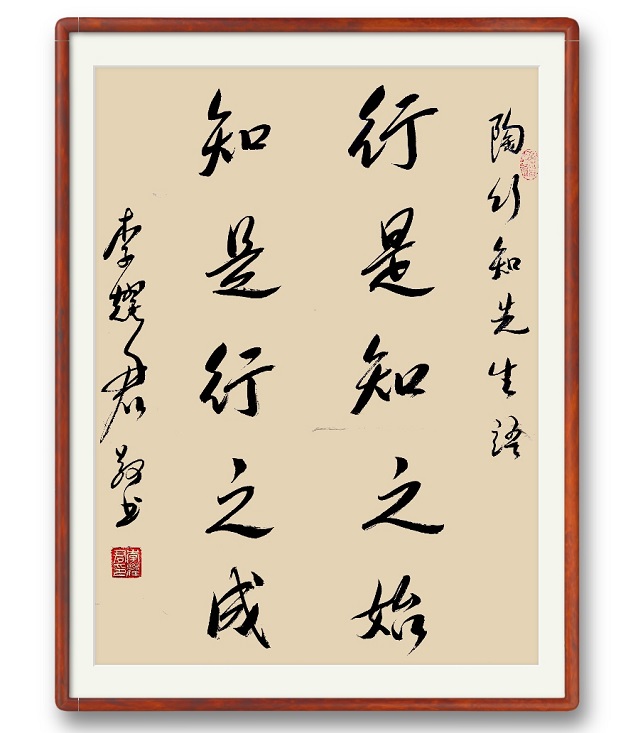 陶行知先生语
行是知之始
知是行之成
李耀君敬书